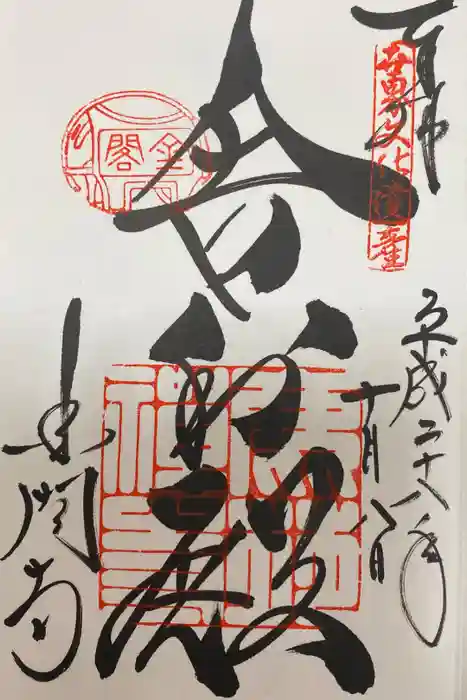 奉拝
世界文化遺産
平成二十八年
十月八日
舎利殿
金閣
金閣寺